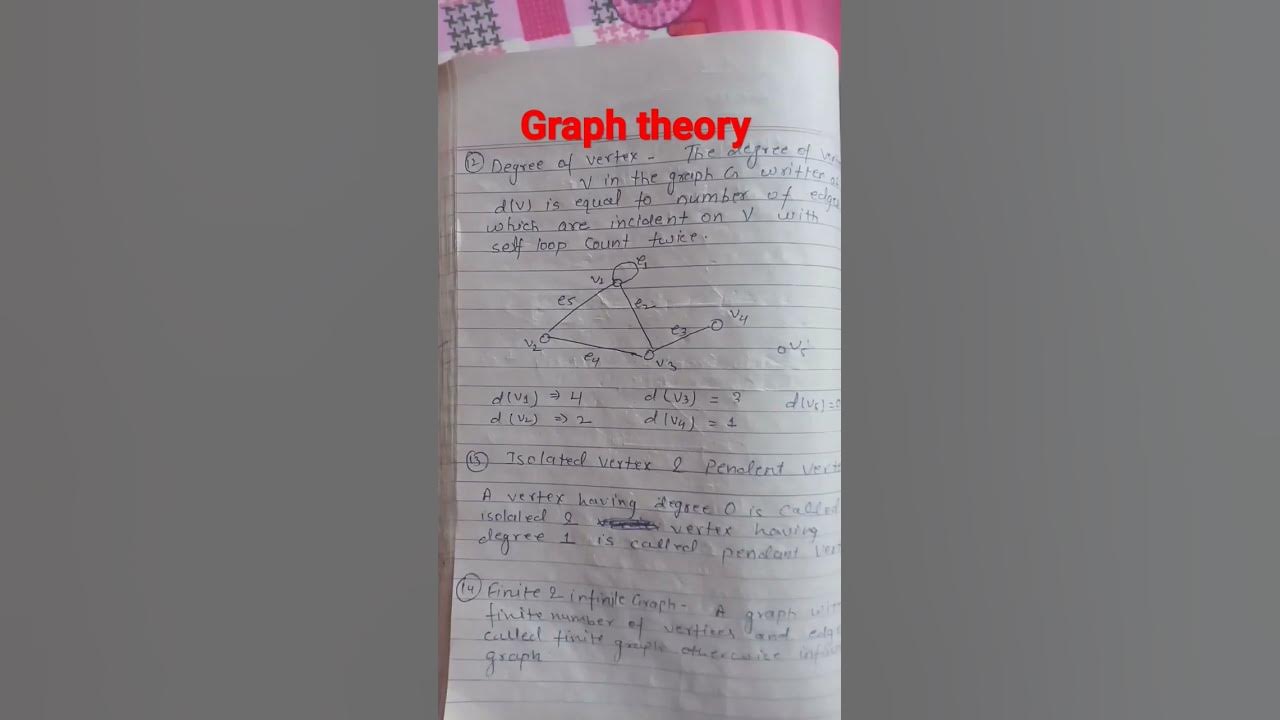 Graph theory
12 Degree of vertex - The degree of
V in the graph G written
d(V) is equal to number of edge
which are incident on V with
self loop count twice.
e1
V1
e5 e2
V4
e3
V2
V5
e4 V3
d(V1) ⇒ 4 d(V3) = 3 d(V5) = 0
d(V2) ⇒ 2 d(V4) = 1
13 Isolated vertex & pendent verte
A vertex having degree 0 is called
isolated & vertex having
degree 1 is called pendant ver
14 Finite & infinite Graph - A graph wit
finite number of vertices and edg
called finite graph otherwise infin
graph